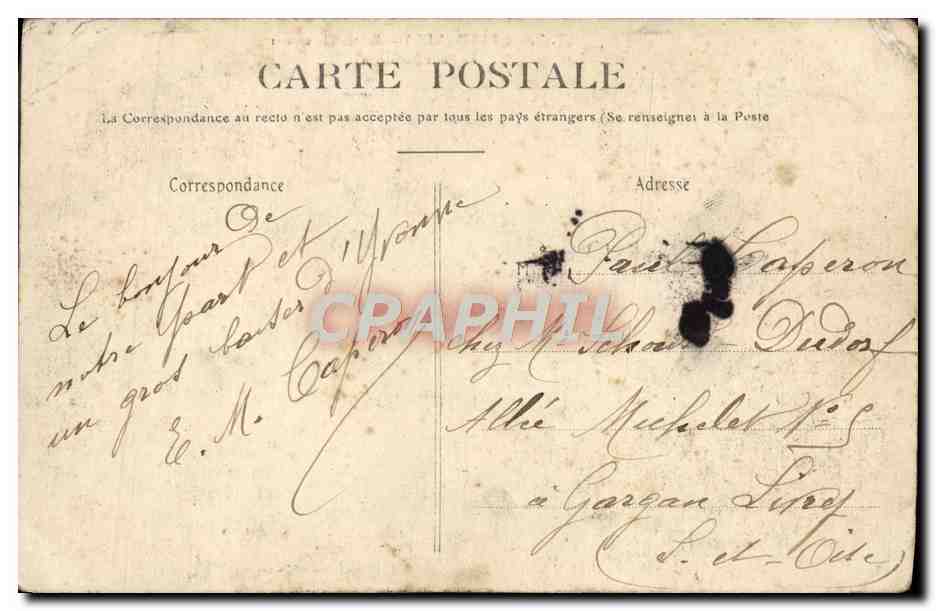 CARTE POSTALE
La Correspondance au recto n'est pas acceptée par tous les pays étrangers (Se renseigner à la Poste
Correspondance
Le bonjour de
notre part et
un gros baiser d'Yvonne
E. M. Caperon
Adresse
Paul Caperon
chez Mr Dudorf
Allée Michelet No 5
à Gargan Livry
(S.-et-Oise)
CPAPHIL